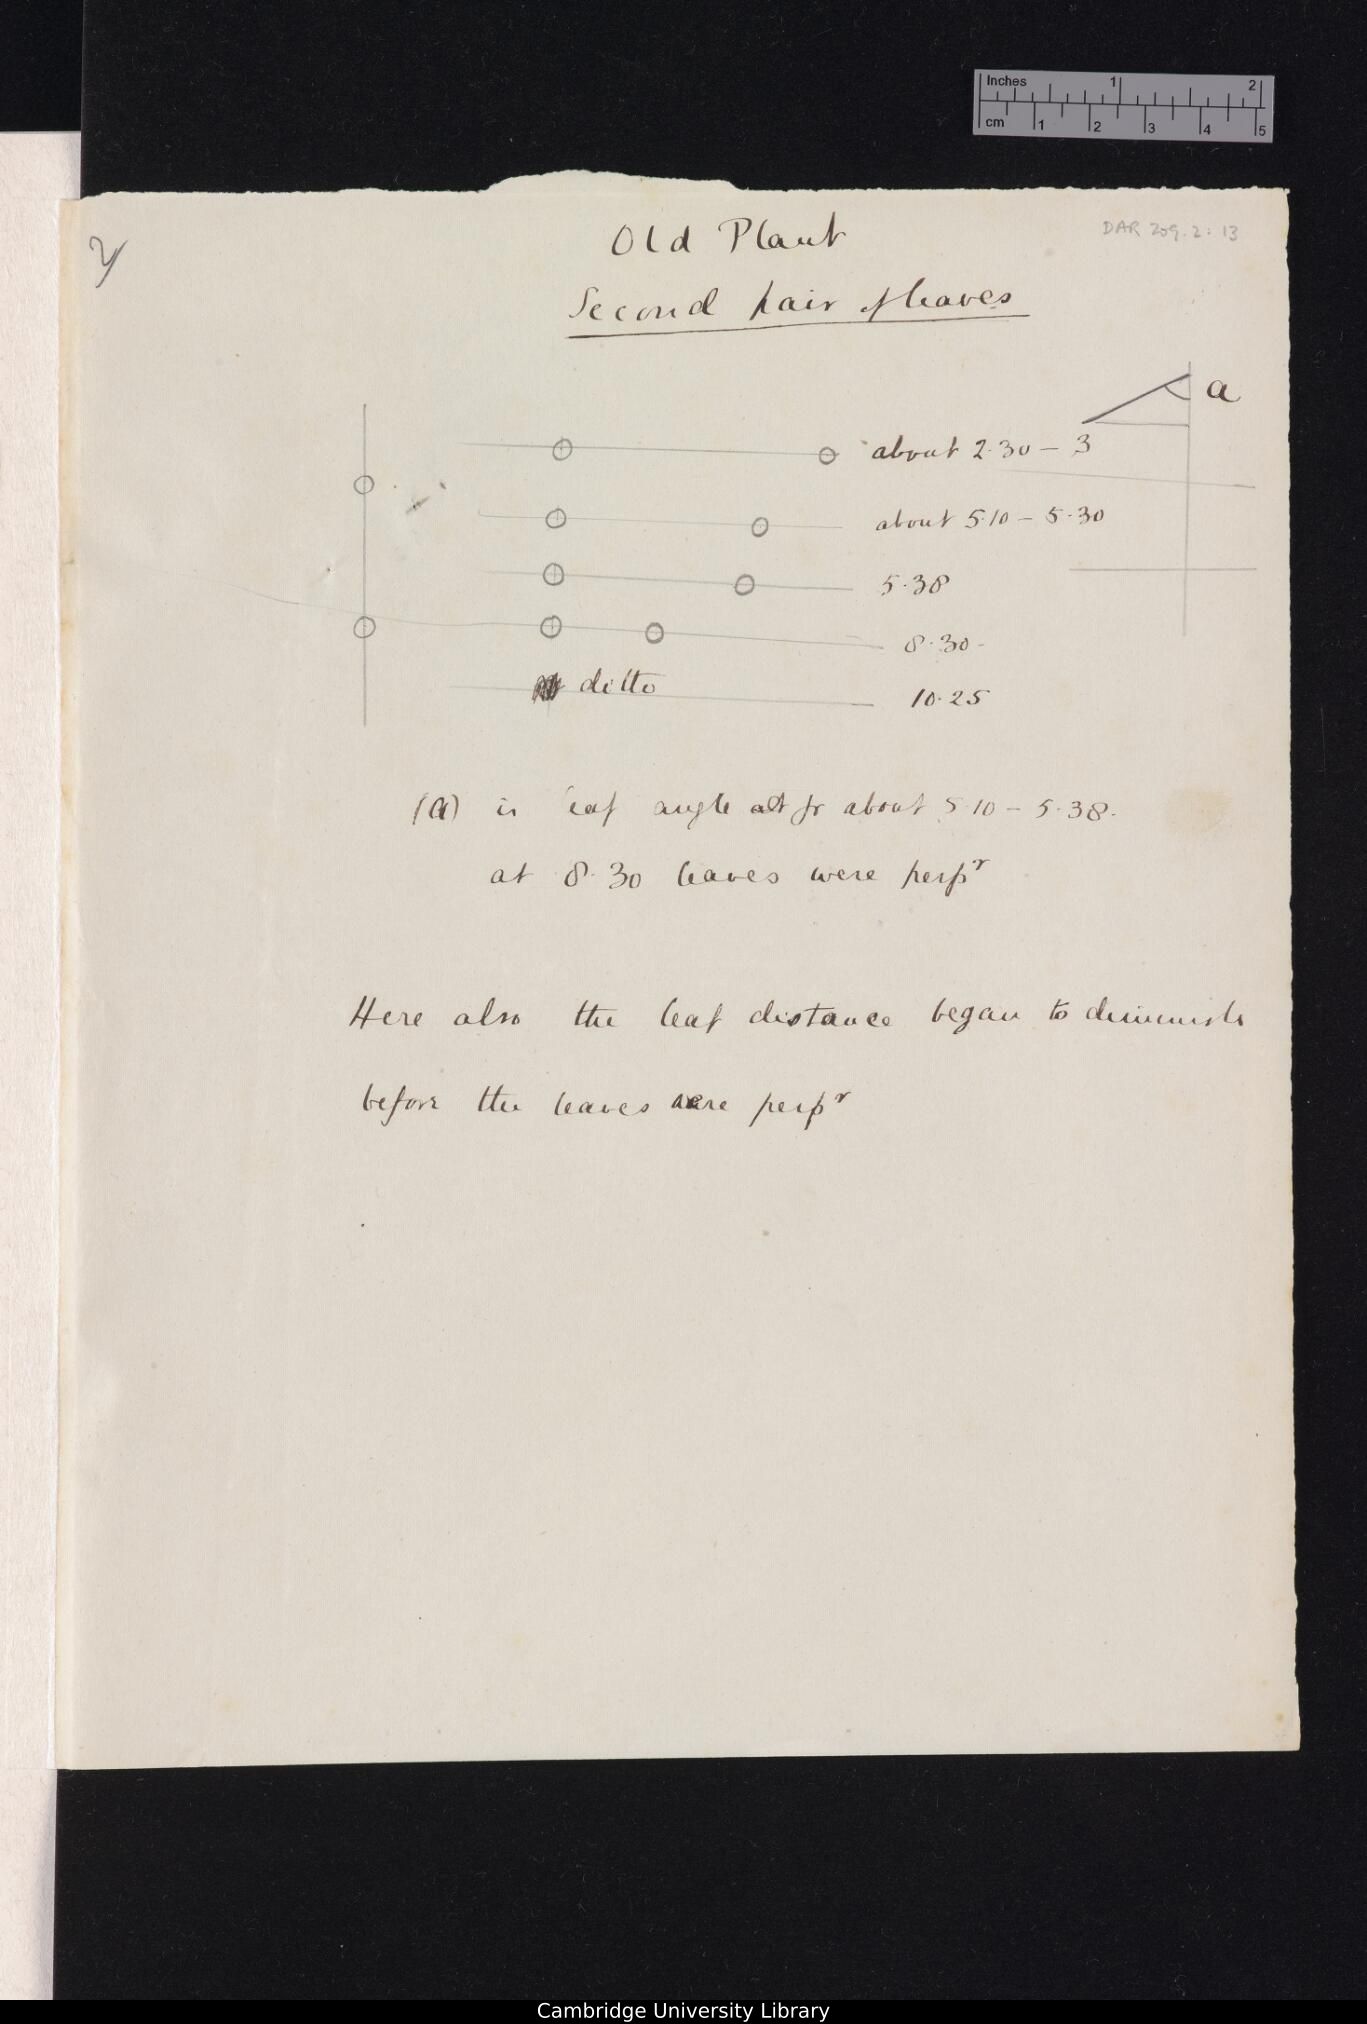 Inches 1 2
cm 1 2 3 4 5
DAR 209.2: 13
Old Plant
Second pair of leaves
a
about 2.30 – 3
about 5.10 – 5.30
5.38
8.30 –
ditto 10.25
(a) is leaf angle at for about 5.10 – 5.38.
at 8.30 leaves were perpr
Here also the leaf distance began to diminish
before the leaves were perpr
Cambridge University Library